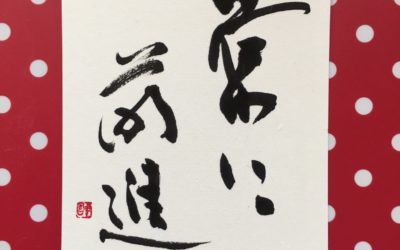 常に
前進